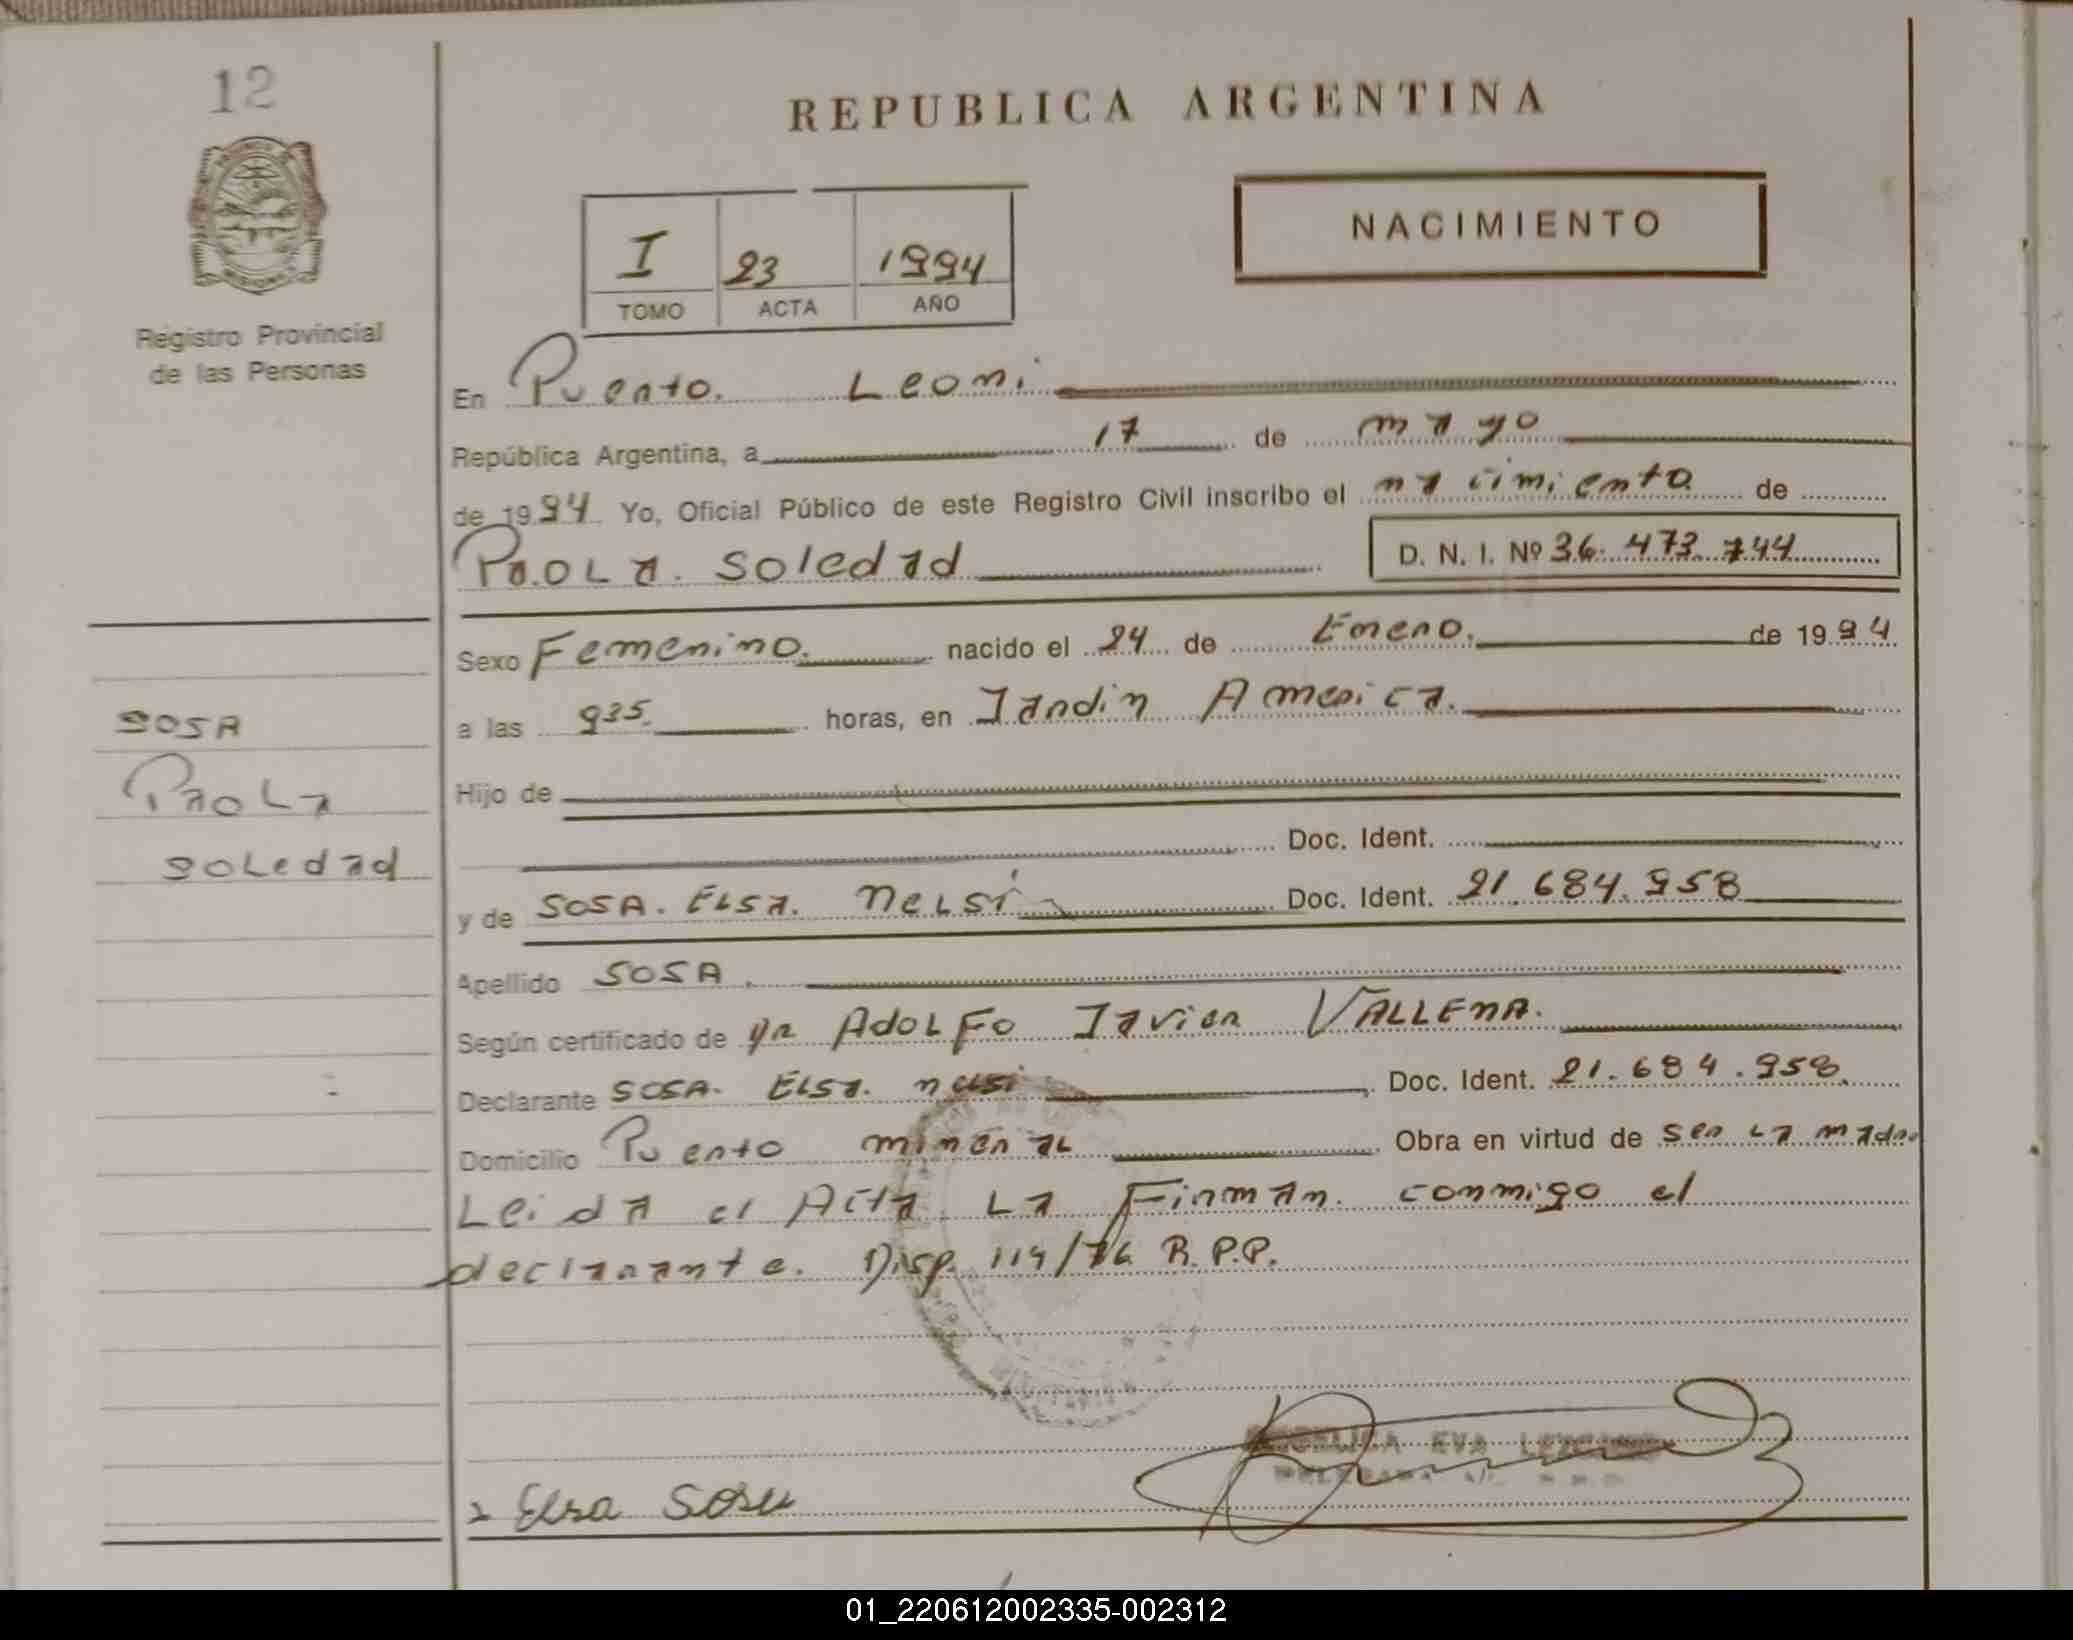 12
REPUBLICA ARGENTINA
NACIMIENTO
I 23 1994
TOMO ACTA AÑO
Registro Provincial
de las Personas
En Puerto Leoni
República Argentina, a 17 de mayo
de 1994 Yo, Oficial Público de este Registro Civil inscribo el nacimiento de
Paola Soledad D. N. I. Nº 36.473.744
Sexo Femenino. nacido el 24 de Enero. de 1994
a las 935 horas, en Jardin America.
SOSA
Paola
Soledad
Hijo de
Doc. Ident.
y de SOSA. ELSA. NELSI Doc. Ident. 21.684.958
Apellido SOSA.
Según certificado de Dr Adolfo Javier VALLENA.
Declarante SOSA. ELSA. nelsi Doc. Ident. 21.684.958
Domicilio Puerto mineral Obra en virtud de ser la madre
Leida el Acta La Firman conmigo el
declarante. Disp. 114/76 R.P.P.
EVA
Elsa Sosa
01_220612002335-002312